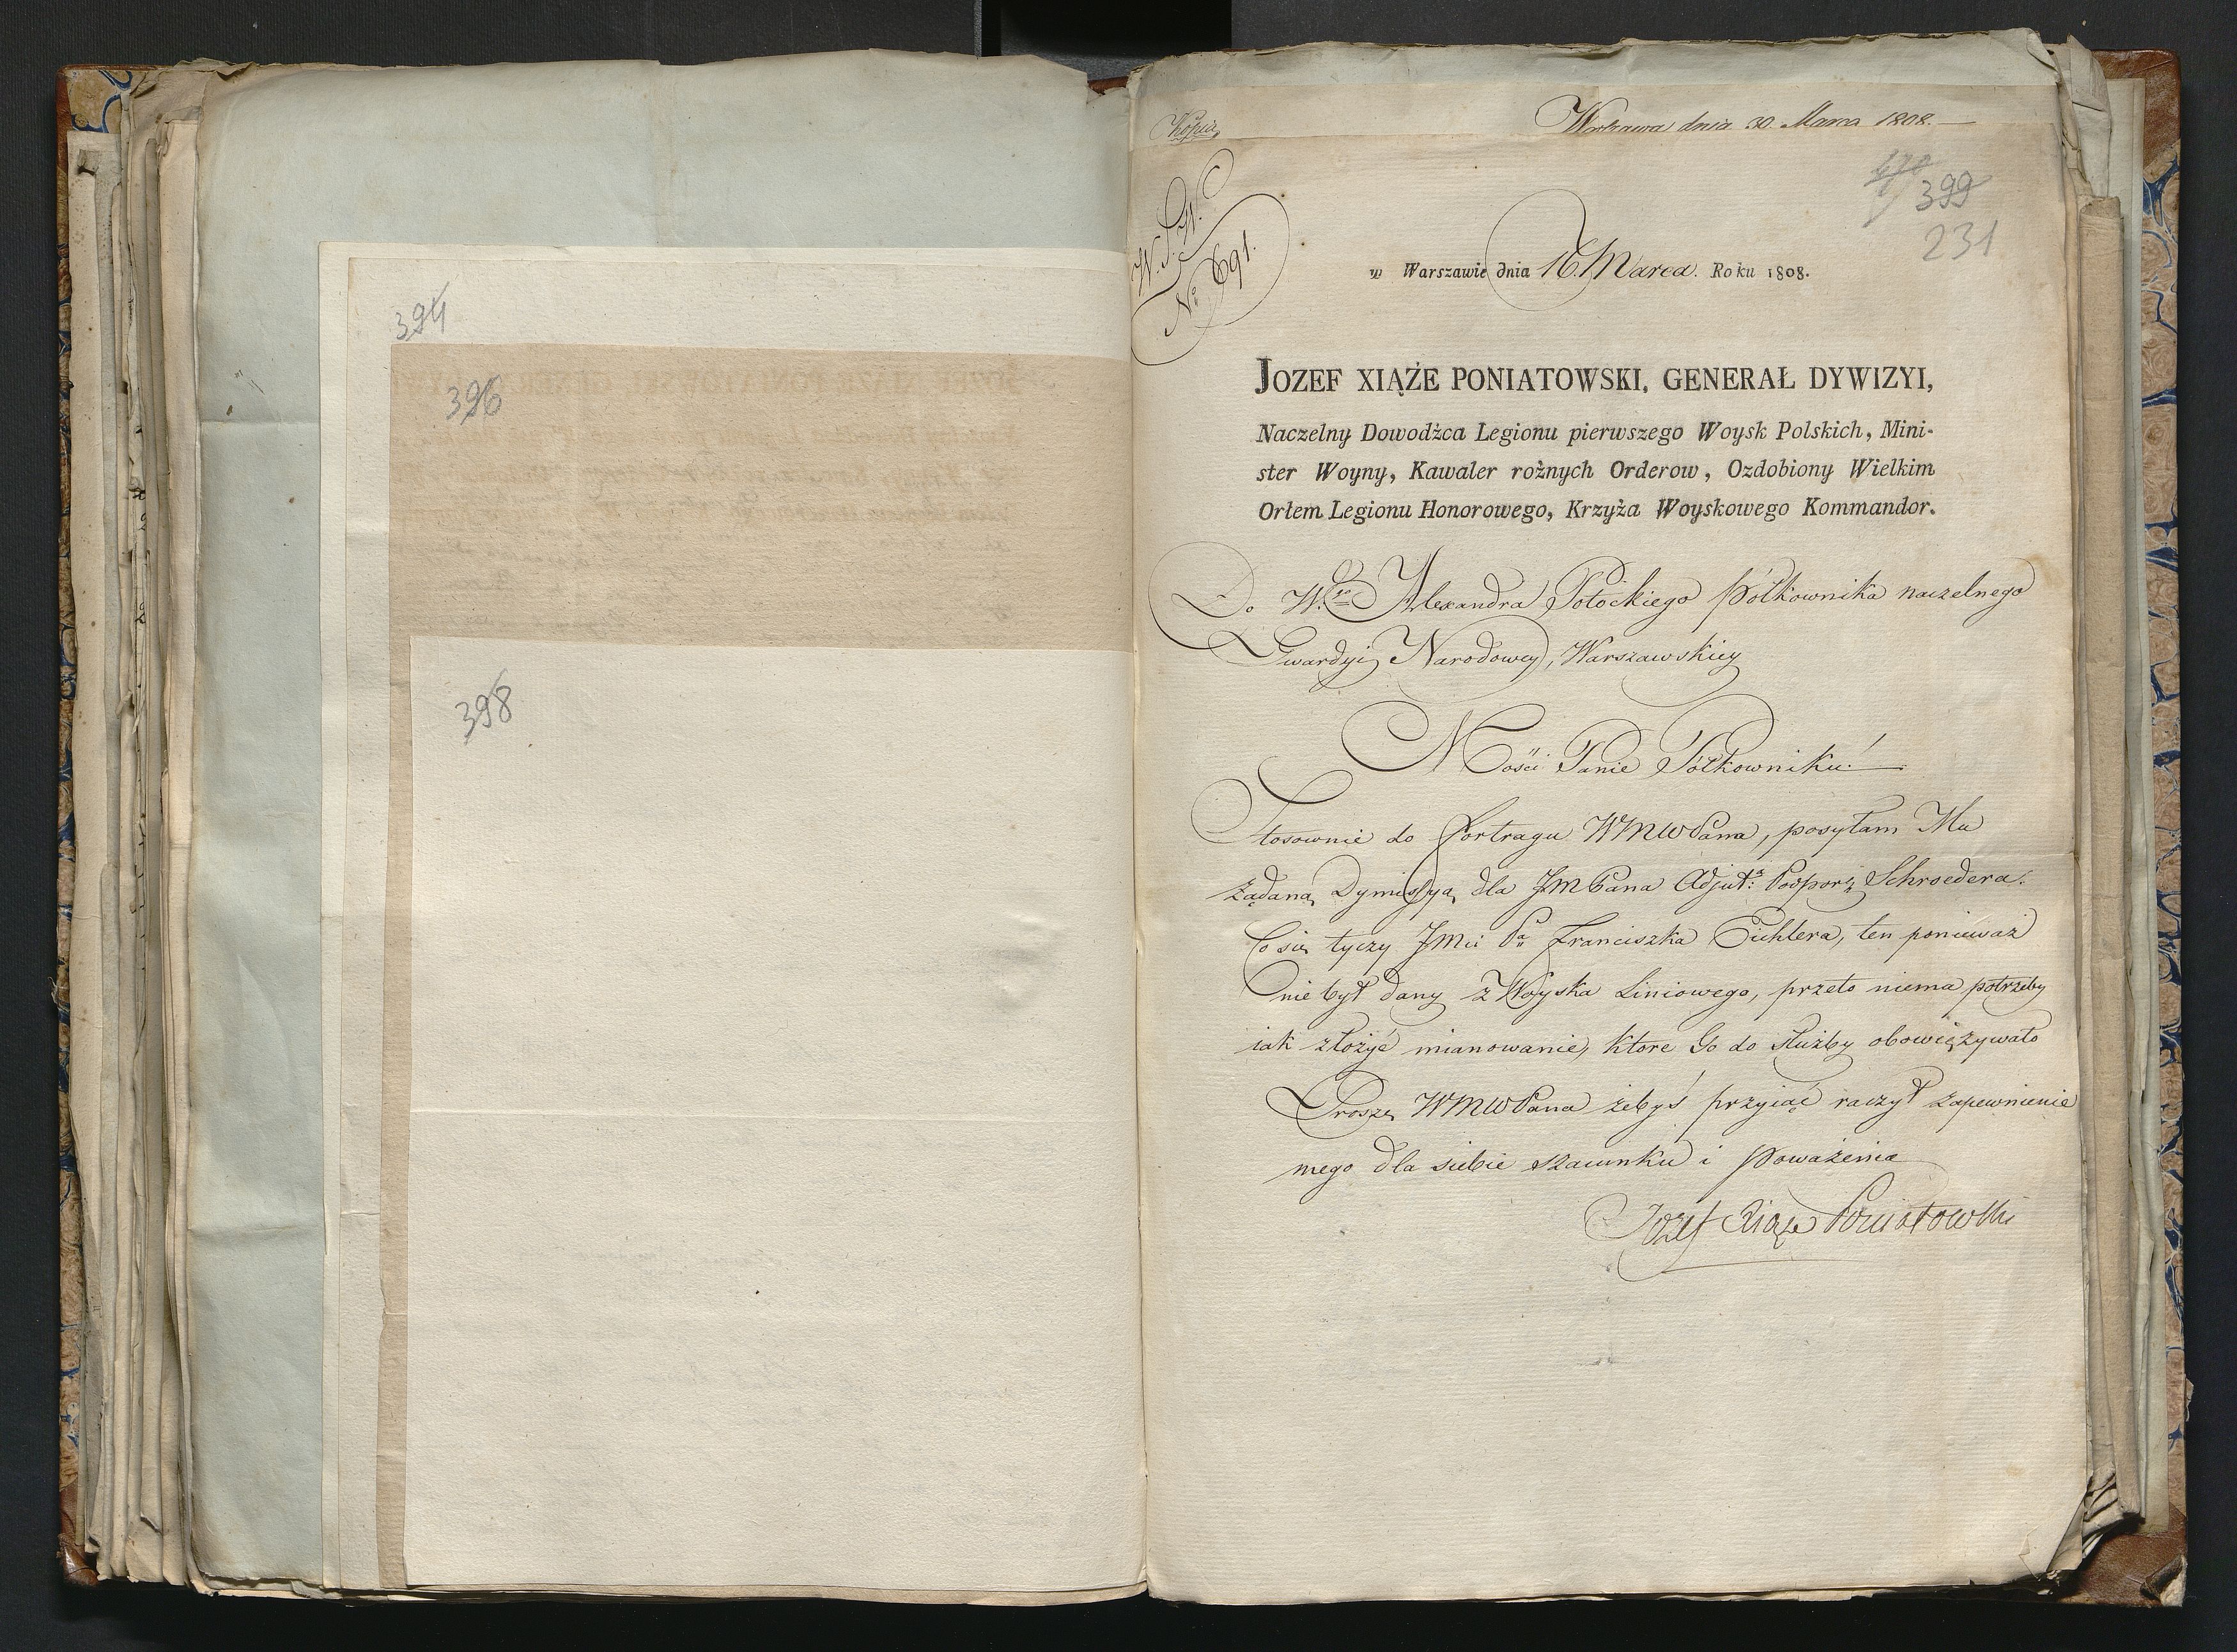 394
396
398
Kopia
Warszawa dnia 30. Marca 1808.
W. S. W. C
No 691.
399
231
w Warszawie dnia 16. Marca. Roku 1808.
JOZEF XIĄŻE PONIATOWSKI, GENERAŁ DYWIZYI,
Naczelny Dowodźca Legionu pierwszego Woysk Polskich, Mini-
ster Woyny, Kawaler rożnych Orderow, Ozdobiony Wielkim
Orłem Legionu Honorowego, Krzyża Woyskowego Kommandor.
Do W.go Alexandra Potockiego Pólkownika naczelnego
Gwardyi Narodowey, Warszawskiey
Mości Panie Pólkowniku!
Stosownie do Portragu WMWPana, posyłam Mu
żądaną Dymissyą dla JMPana Adjut: Podpor: Schroedera.
Co się tyczy JMci Pa Franciszka Eichlera, ten ponieważ
nie był dany z Woyska Liniowego, przeto niema potrzeby
iak złożyć mianowanie, ktore Go do służby obowiązywało
Proszę WMWPana żebyś przyiąć raczył zapewnienie
mego dla siebie szacunku i poważenia
Jozef Xiąże Poniatowski